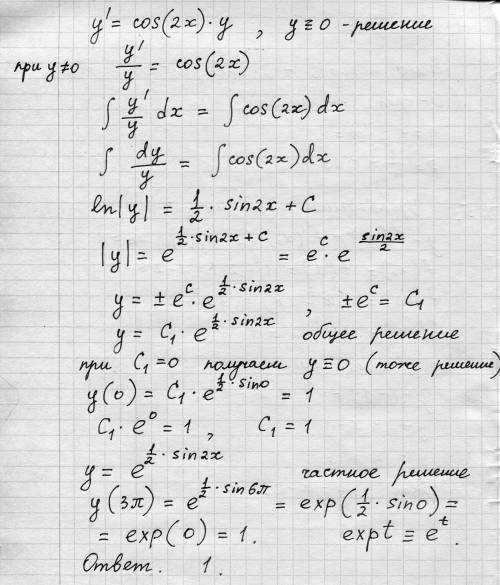 y' = cos(2x)·y , y ≡ 0 - решение
при y≠0 y'/y = cos(2x)
∫ y'/y dx = ∫ cos(2x) dx
∫ dy/y = ∫ cos(2x) dx
ln|y| = 1/2 · sin2x + C
|y| = e^(1/2·sin2x + C) = e^C · e^(sin2x/2)
y = ±e^C · e^(1/2·sin2x) , ±e^C = C₁
y = C₁ · e^(1/2·sin2x) общее решение
при C₁=0 получаем y≡0 (тоже решение)
y(0) = C₁ · e^(1/2·sin0) = 1
C₁ · e^0 = 1 , C₁ = 1
y = e^(1/2·sin2x) частное решение
y(3π) = e^(1/2·sin6π) = exp(1/2 · sin0) =
= exp(0) = 1. expt ≡ e^t.
Ответ. 1.